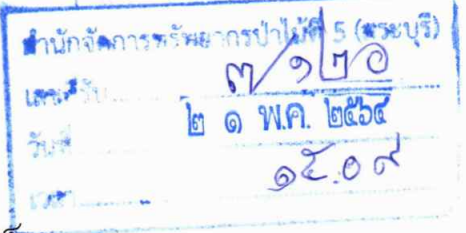 สำนักจัดการทรัพยากรป่าไม้ที่ 5 (สระบุรี)
เลขที่รับ ๓/๑๒๐
วันที่ ๒ ๑ พ.ค. ๒๕๖๔
เวลา ๑๕.๐๙